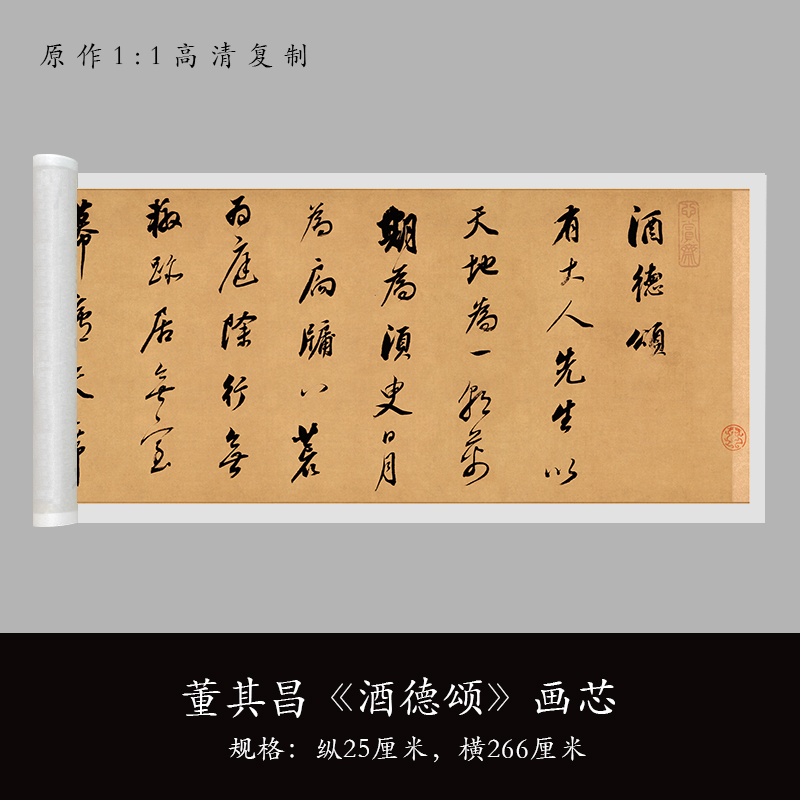 原作1:1高清复制
玄賞齋
酒德頌
有大人先生以
天地為一朝萬
期為須臾日月
為扃牖八荒
為庭除行無
轍跡居無室
董其昌《酒德颂》画芯
规格：纵25厘米，横266厘米